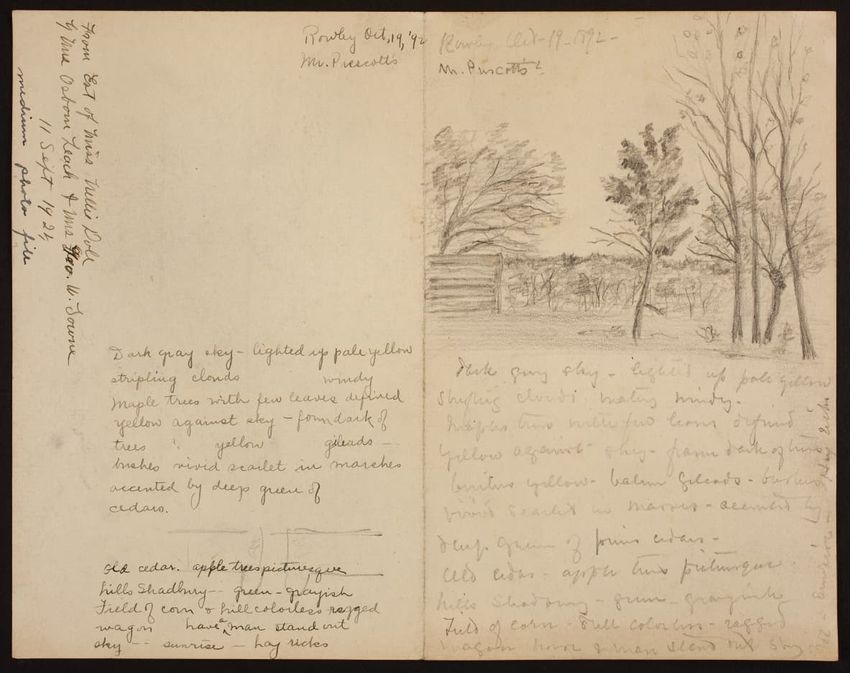 From Est of Miss Nellie Dole
by Mrs Osborn Leach & Mrs Geo. W. Towne
11 Sept 1924
medium photo file
Rowley Oct, 19, '92
Mr. Prescott's
Dark gray sky - lighted up pale yellow
stripling clouds windy
Maple trees with few leaves defined
yellow against sky - foun dark of
trees yellow gileads -
bushes vivid scarlet in marshes
accented by deep green of
cedars.
old cedar. apple trees picturesque
hills Shadbury - green - grayish
Field of corn & hill colorless ragged
wagon have a man stand out
sky -- sunrise - hay ricks
Rowley Oct - 19 - 1892 -
Mr. Prescott's
Dark gray sky - lighted up pale yellow
clouds windy.
Maples trees with few leaves defined
yellow against sky - dark of trees
yellow - balm gileads - bushes
vivid scarlet in - accented by
deep green of cedars -
Old cedar - apple trees picturesque
hills - green - grayish
Field of corn - colorless - ragged
wagon & man stand out sky